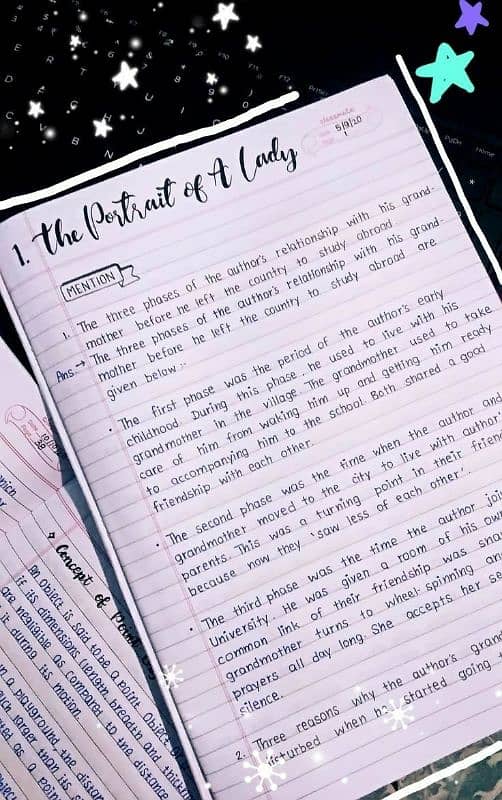 classmate
5/9/20
1
1. The Portrait of A Lady
MENTION
1. The three phases of the author's relationship with his grand-
mother before he left the country to study abroad.
Ans.→ The three phases of the author's relationship with his grand-
mother before he left the country to study abroad are
given below :-
• The first phase was the period of the author's early
childhood. During this phase, he used to live with his
grandmother in the village. The grandmother used to take
care of him from waking him up and getting him ready
to accompanying him to the school. Both shared a good
friendship with each other.
• The second phase was the time when the author and
grandmother moved to the city to live with author
parents. This was a turning point in their frien
because now they 'saw less of each other'.
• The third phase was the time the author jo
University. He was given a room of his own
common link of their friendship was sna
grandmother turns to wheel-spinning an
prayers all day long. She accepts her se
silence.
2. Three reasons why the author's gran
disturbed when he started going t
Concept of
An object is said to be a Point Object
if its dimensions (length, breadth and thick
are negligible as compared to the distance
it during its motion.
n a playground, the distan
uch larger than its